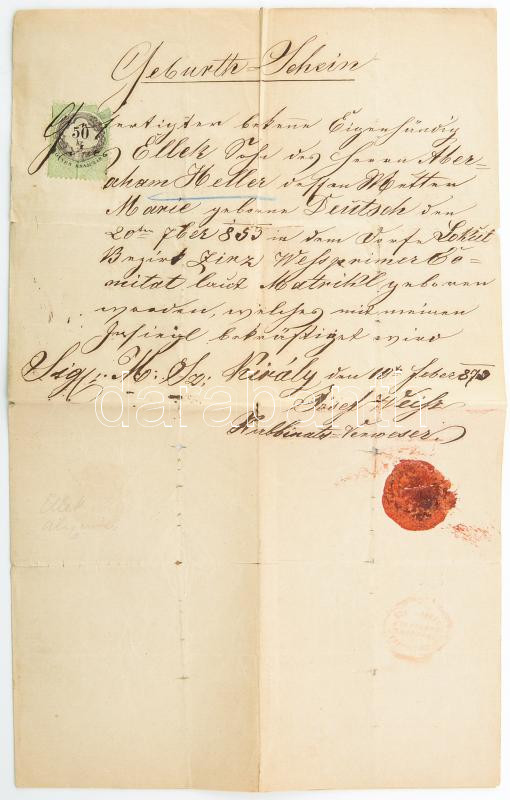 Geburth-Schein
50
Gefertigter bekene Eigenhändig
Ellek Sohn des Herrn Aber-
aham Heller dessen Mutter
Marie geborne Deutsch den
20ten 7ber 853 in dem Dorfe Lokut
Bezirk Zirz Wessprimer Co-
mitat laut Matrikl geboren
worden, welches mit meinen
Insiegl bekräftiget wird
Sig. K. Sz. Király den 19ten feber 873
Josef
Rabbinats-Verweser
Ellek
darabanth